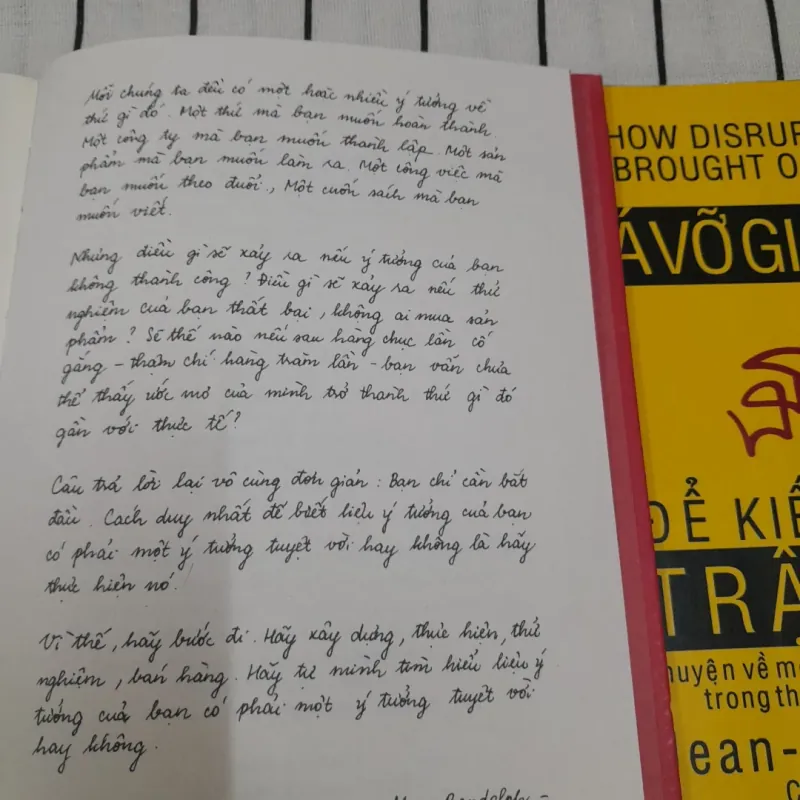 Mỗi chúng ta đều có một hoặc nhiều ý tưởng về
thứ gì đó. Một thứ mà bạn muốn hoàn thành.
Một công ty mà bạn muốn thành lập. Một sản
phẩm mà bạn muốn làm ra. Một công việc mà
bạn muốn theo đuổi., Một cuốn sách mà bạn
muốn viết.
Nhưng điều gì sẽ xảy ra nếu ý tưởng của bạn
không thành công? Điều gì sẽ xảy ra nếu thử
nghiệm của bạn thất bại, không ai mua sản
phẩm? Sẽ thế nào nếu sau hàng chục lần cố
gắng - thậm chí hàng trăm lần - bạn vẫn chưa
thể thấy ước mơ của mình trở thành thứ gì đó
gần với thực tế?
Câu trả lời lại vô cùng đơn giản: Bạn chỉ cần bắt
đầu. Cách duy nhất để biết liệu ý tưởng của bạn
có phải một ý tưởng tuyệt vời hay không là hãy
thực hiện nó.
Vì thế, hãy bước đi. Hãy xây dựng, thực hiện, thử
nghiệm, bán hàng. Hãy tự mình tìm hiểu liệu ý
tưởng của bạn có phải một ý tưởng tuyệt vời
hay không.
HOW DISRUP
BROUGHT O
Á VỠ GI
ĐỂ KIẾ
TRẬ
huyện về m
trong th
ean-